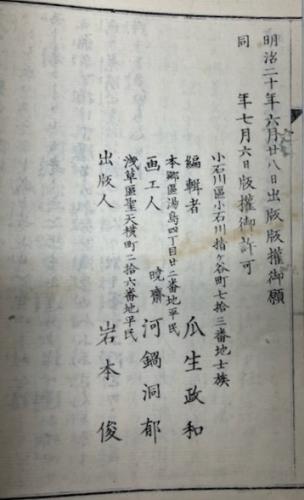 明治二十年六月廿八日出版版權御願
同　年七月六日版權御許可
小石川區小石川指ヶ谷町七拾三番地士族
編輯者　瓜生政和
本郷區湯島四丁目廿二番地平民
画工人　曉齋　河鍋洞郁
浅草區聖天横町二拾六番地平民
出版人　岩本俊